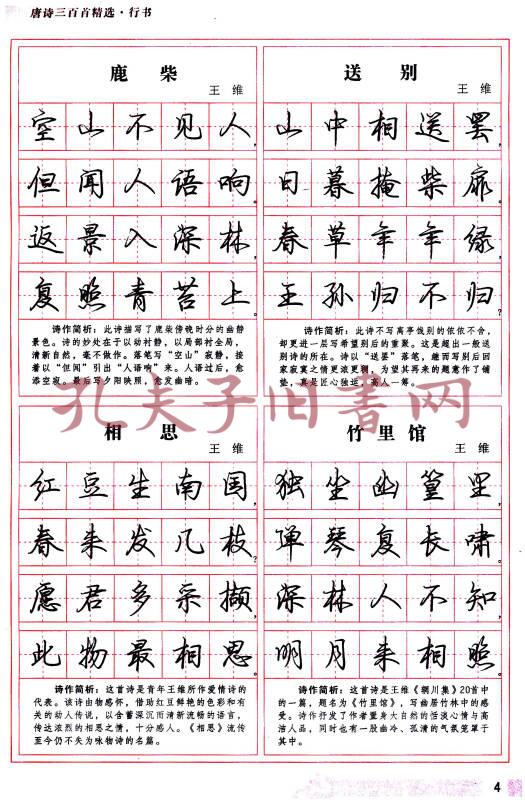 唐诗三百首精选·行书
鹿柴
王维
空山不见人，
但闻人语响。
返景入深林，
复照青苔上。
诗作简析：此诗描写了鹿柴傍晚时分的幽静
景色。诗的妙处在于以动衬静，以局部衬全局，
清新自然，毫不做作。落笔写“空山”寂静，接
着以“但闻”引出“人语响”来。人语过后，愈
添空寂。最后写夕阳映照，愈发幽暗。
送别
王维
山中相送罢，
日暮掩柴扉。
春草年年绿，
王孙归不归？
诗作简析：此诗不写离亭饯别的依依不舍，
却更进一层写希望别后的重聚。这是超出一般送
别诗的所在。诗以“送罢”落笔，继而写别后回
家寂寞之情更浓更稠，为望其再来的题意作了铺
垫，真是匠心独运，高人一筹。
孔夫子旧书网
相思
王维
红豆生南国，
春来发几枝？
愿君多采撷，
此物最相思。
诗作简析：这首诗是青年王维所作爱情诗的
代表。该诗由物感怀，借助红豆鲜艳的色彩和有
关的动人传说，以含蓄深沉而清新流畅的语言，
传达浓烈的相思之情，十分感人。《相思》流传
至今仍不失为咏物诗的名篇。
竹里馆
王维
独坐幽篁里，
弹琴复长啸。
深林人不知，
明月来相照。
诗作简析：这首诗是王维《辋川集》20首中
的一篇，题名为《竹里馆》，写幽居竹林中的感
受。诗作抒发了作者置身大自然的恬淡心情与高
洁人品，同时也有一股幽冷、孤清的气氛笼罩于
其中。
4